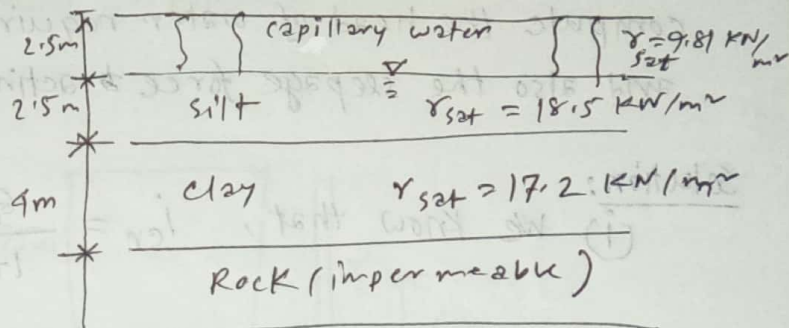 2.5m capillary water γsat=9.81 KN/m²
2.5m silt γsat = 18.5 KN/m²
4m clay γsat = 17.2 KN/m²
Rock (impermeable)